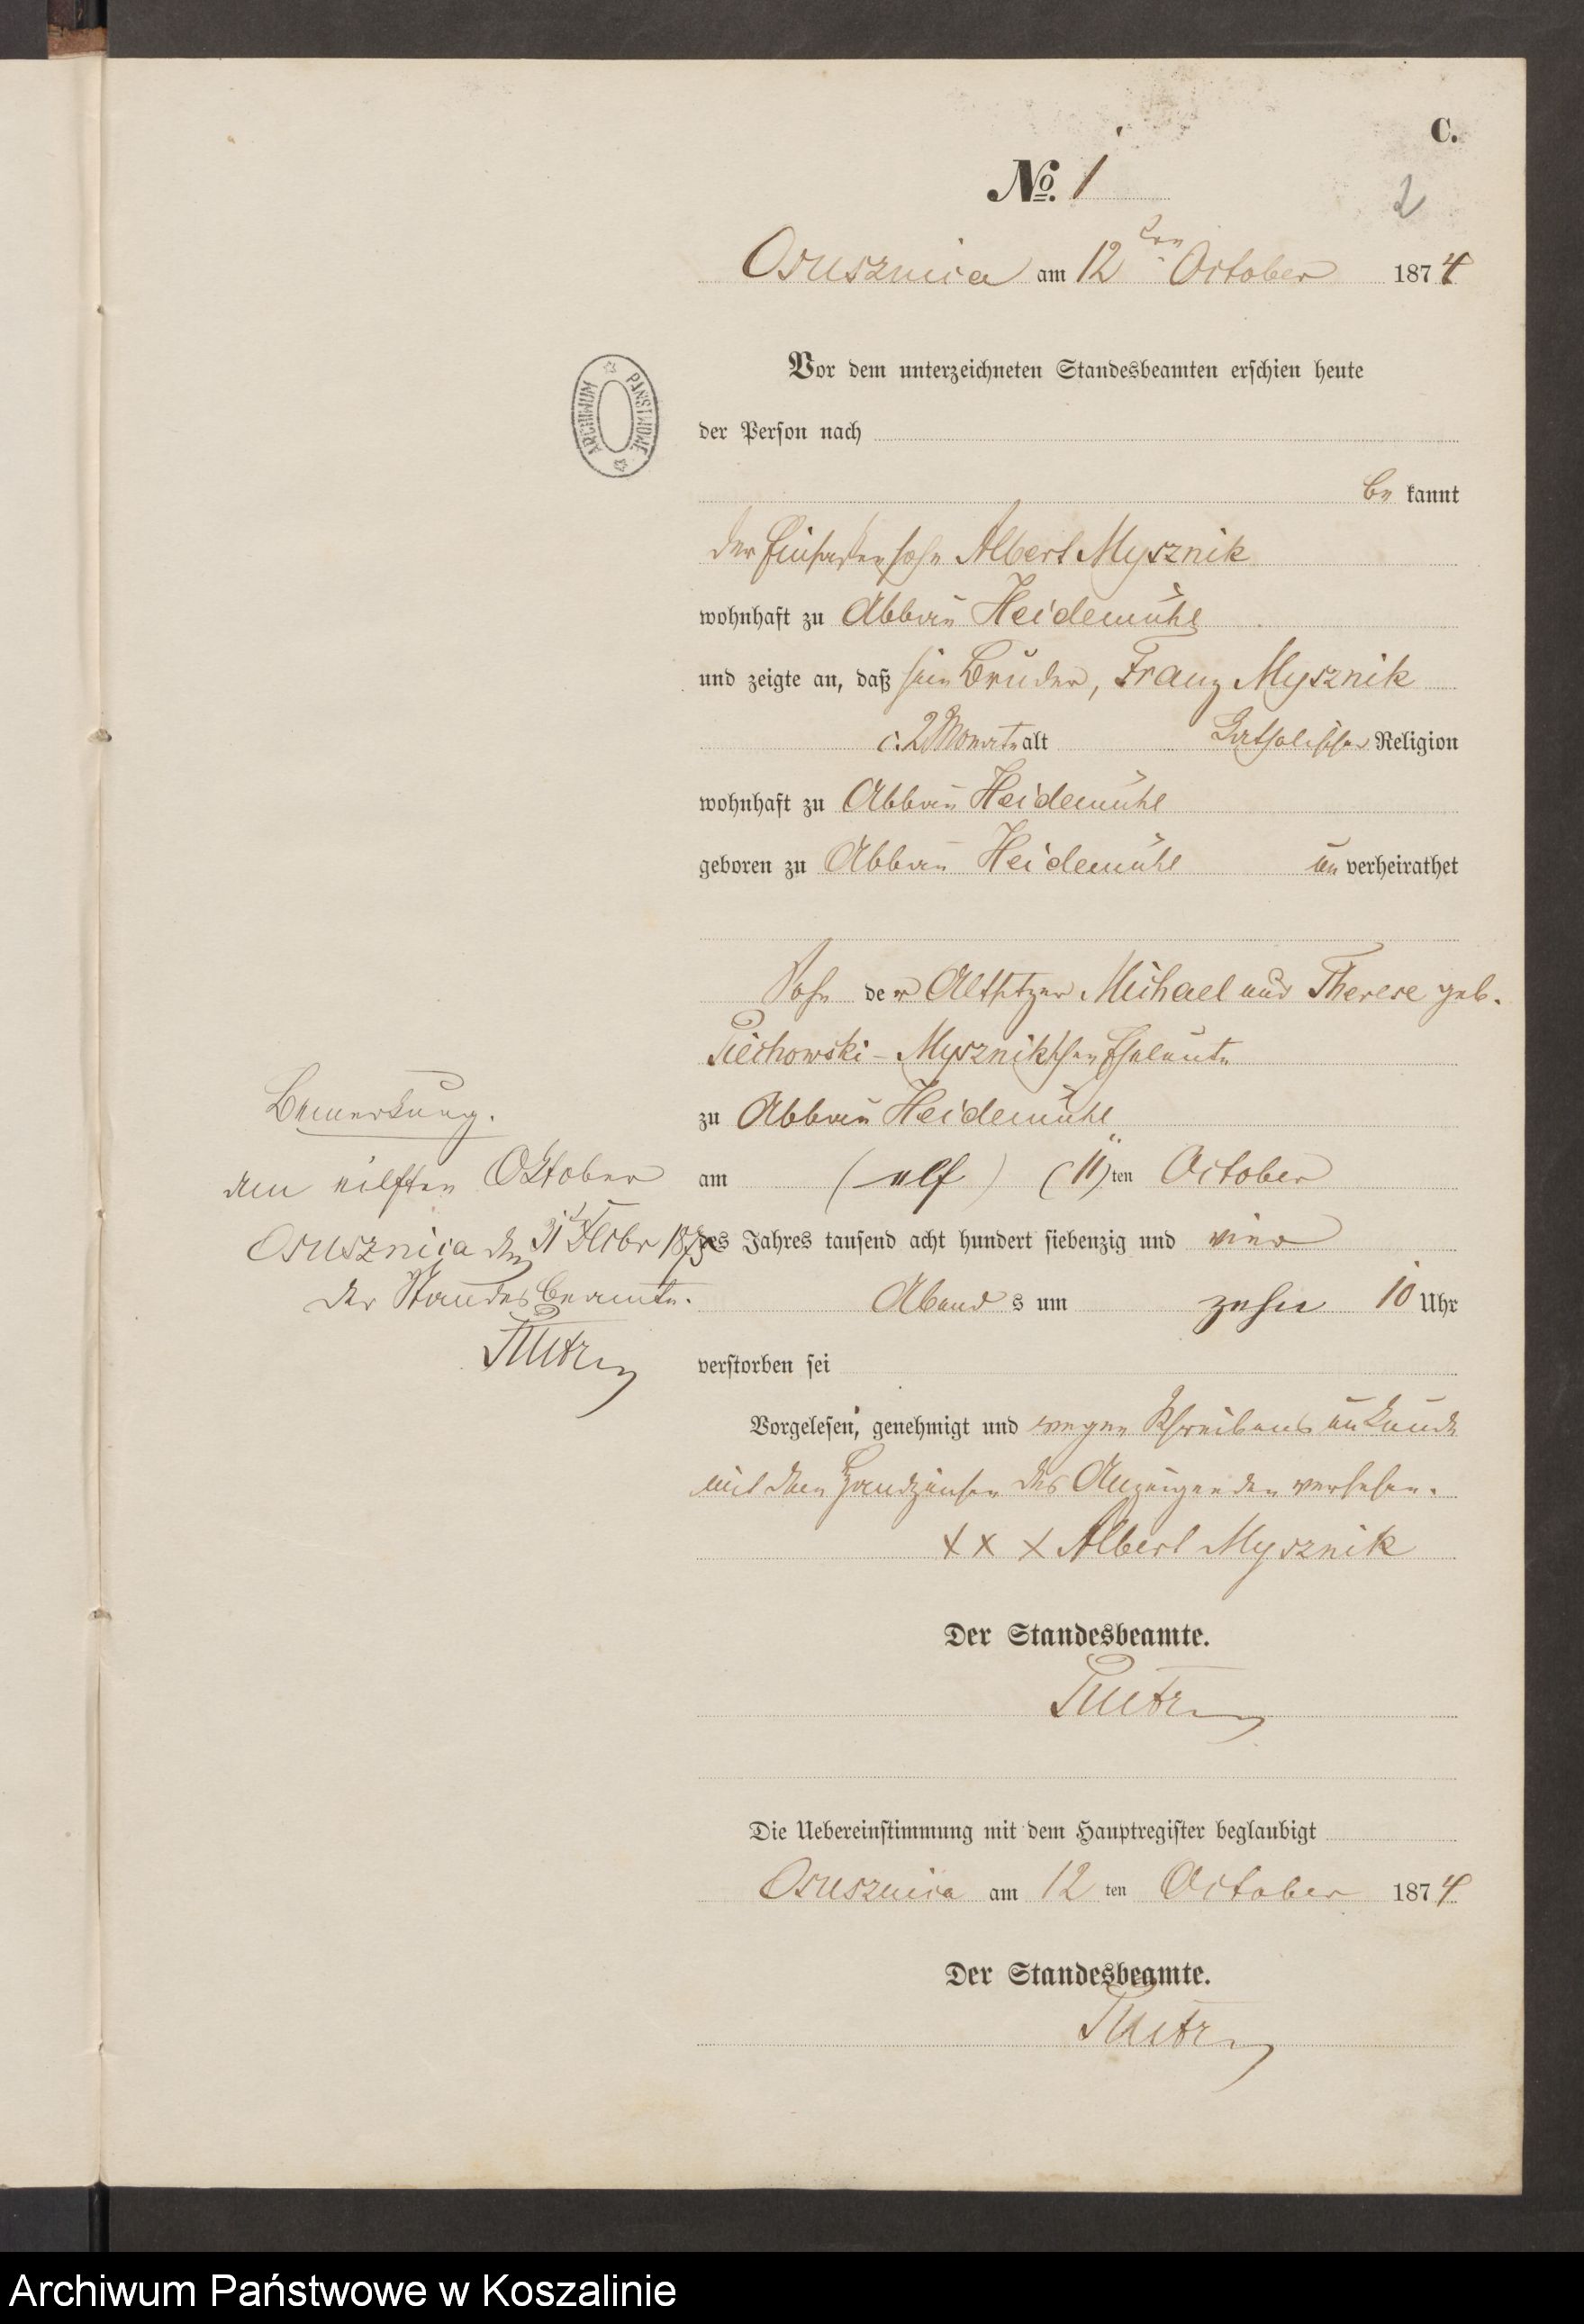 C.
No. 1
2
Osusznica am 12ten October 1874
ARCHIWUM PAŃSTWOWE
Vor dem unterzeichneten Standesbeamten erschien heute
der Person nach
be kannt
der Einsassensohn Albert Mysznik
wohnhaft zu Abbau Heidemühl
und zeigte an, daß sein Bruder, Franz Mysznik
c. 2 Monate alt katholischer Religion
wohnhaft zu Abbau Heidemühl
geboren zu Abbau Heidemühl un verheirathet
Sohn der Altsitzer Michael und Therese geb.
Piechowski-Mysznikschen Eheleute
zu Abbau Heidemühl
am (elf) (11)ten October
des Jahres tausend acht hundert siebenzig und vier
Abend s um zehn 10 Uhr
verstorben sei
Bemerkung.
den eilften Oktober
Osusznica den 31t Dcbr 187
der Standesbeamte.
Vorgelesen, genehmigt und wegen Schreibensunkunde
mit den Handzeichen des Anzeigenden versehen.
x x x Albert Mysznik
Der Standesbeamte.
Die Uebereinstimmung mit dem Hauptregister beglaubigt
Osusznica am 12 ten October 1874
Der Standesbeamte.
Archiwum Państwowe w Koszalinie